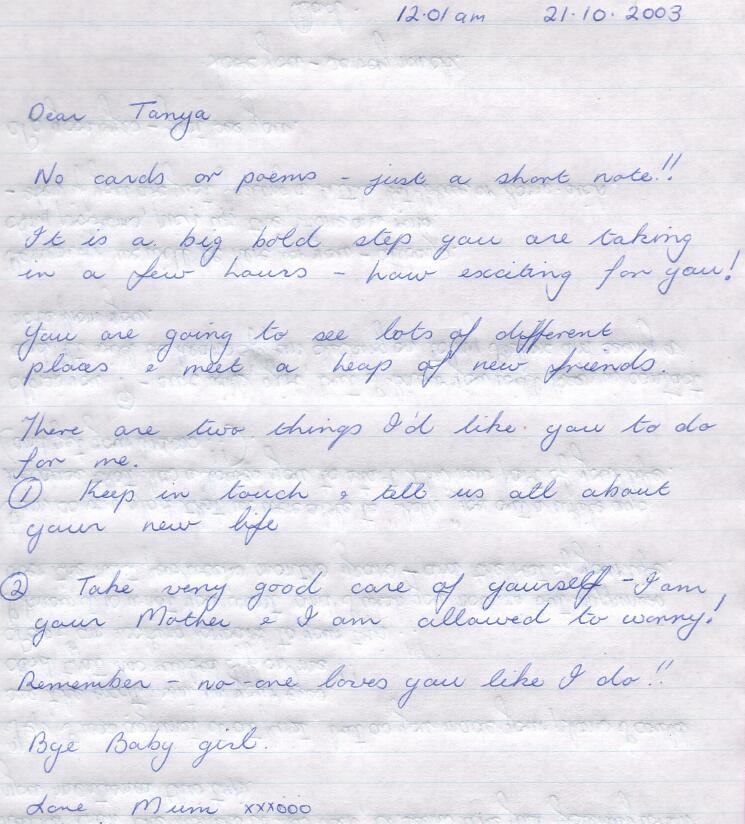 12.01am 21.10.2003
Dear Tanya
No cards or poems - just a short note!!
It is a big bold step you are taking
in a few hours - how exciting for you!
You are going to see lots of different
places & meet a heap of new friends.
There are two things I'd like you to do
for me.
① Keep in touch & tell us all about
your new life
② Take very good care of yourself - I am
your Mother & I am allowed to worry!
Remember - no-one loves you like I do!!
Bye Baby girl.
Love Mum xxxooo